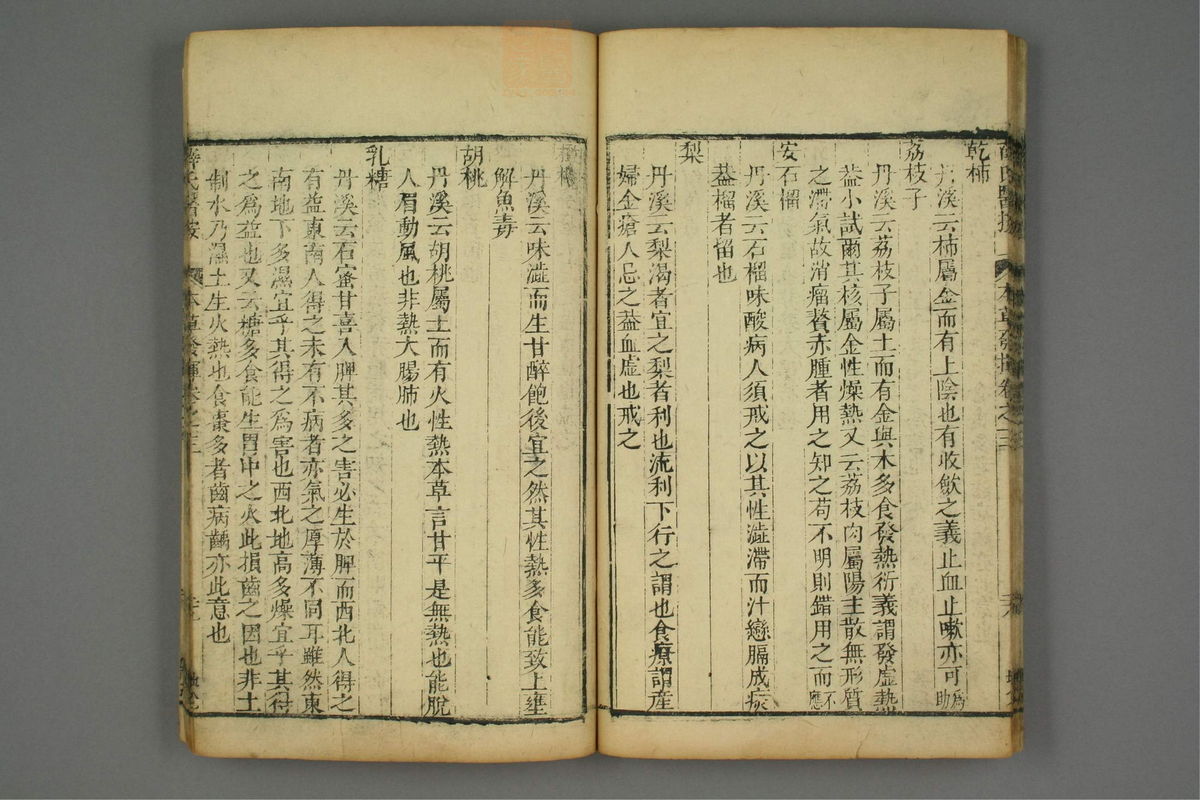 薛氏醫按 本草發揮卷之三
乾柿
丹溪云柿屬金而有土陰也有收歛之義止血止嗽亦可爲助
荔枝子
丹溪云荔枝子屬土而有金與木多食發熱衍義謂發虛熱
益小試爾其核屬金性燥熱又云荔枝肉屬陽主散無形質
之滯氣故消瘤贅赤腫者用之知之苟不明則錯用之而不應
安石榴
丹溪云石榴味酸病人須戒之以其性澁滯而汁戀膈成痰
益榴者留也
梨
丹溪云梨渴者宜之梨者利也流利下行之謂也食療謂産
婦金瘡人忌之益血虛也戒之
丹溪云味澁而生甘醉飽後宜之然其性熱多食能致上壅
解魚毒
胡桃
丹溪云胡桃屬土而有火性熱本草言甘平是無熱也能脫
人眉動風也非熱大腸肺也
乳糖
丹溪云石蜜甘喜入脾其多之害必生於脾而西北人得之
有益東南人得之未有不病者亦氣之厚薄不同耳雖然東
南地下多濕宜乎其得之爲害也西北地高多燥宜乎其得
之爲益也又云糖多食能生胃中之火此損齒之因也非土
制水乃濕土生火熱也食棗多者齒病齲亦此意也
薛氏醫按 本草發揮卷之三